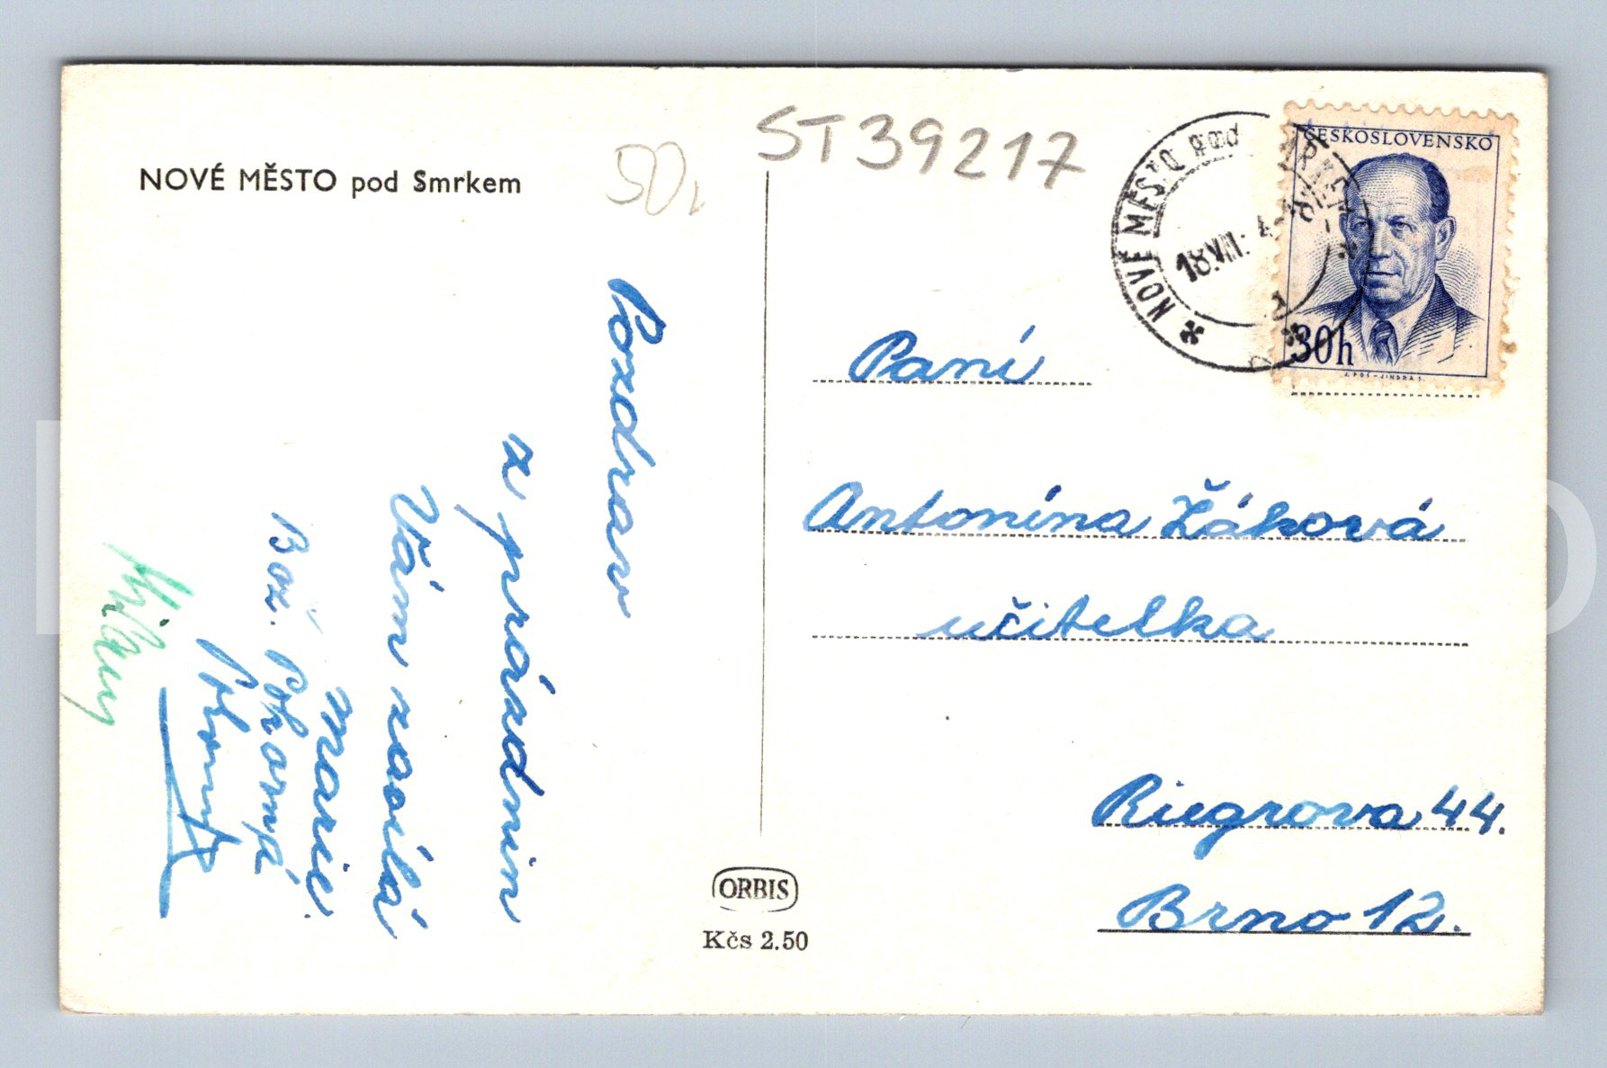 NOVÉ MĚSTO pod Smrkem
ST39217
Pozdrav
z prázdnin
Vám zasílá
Marie.
Bož. Pokorná
NOVÉ MĚSTO pod SMRKEM
18.VII.
ČESKOSLOVENSKO
30h
Paní
Antonína Žáková
učitelka
Riegrova 44.
Brno 12.
ORBIS
Kčs 2.50